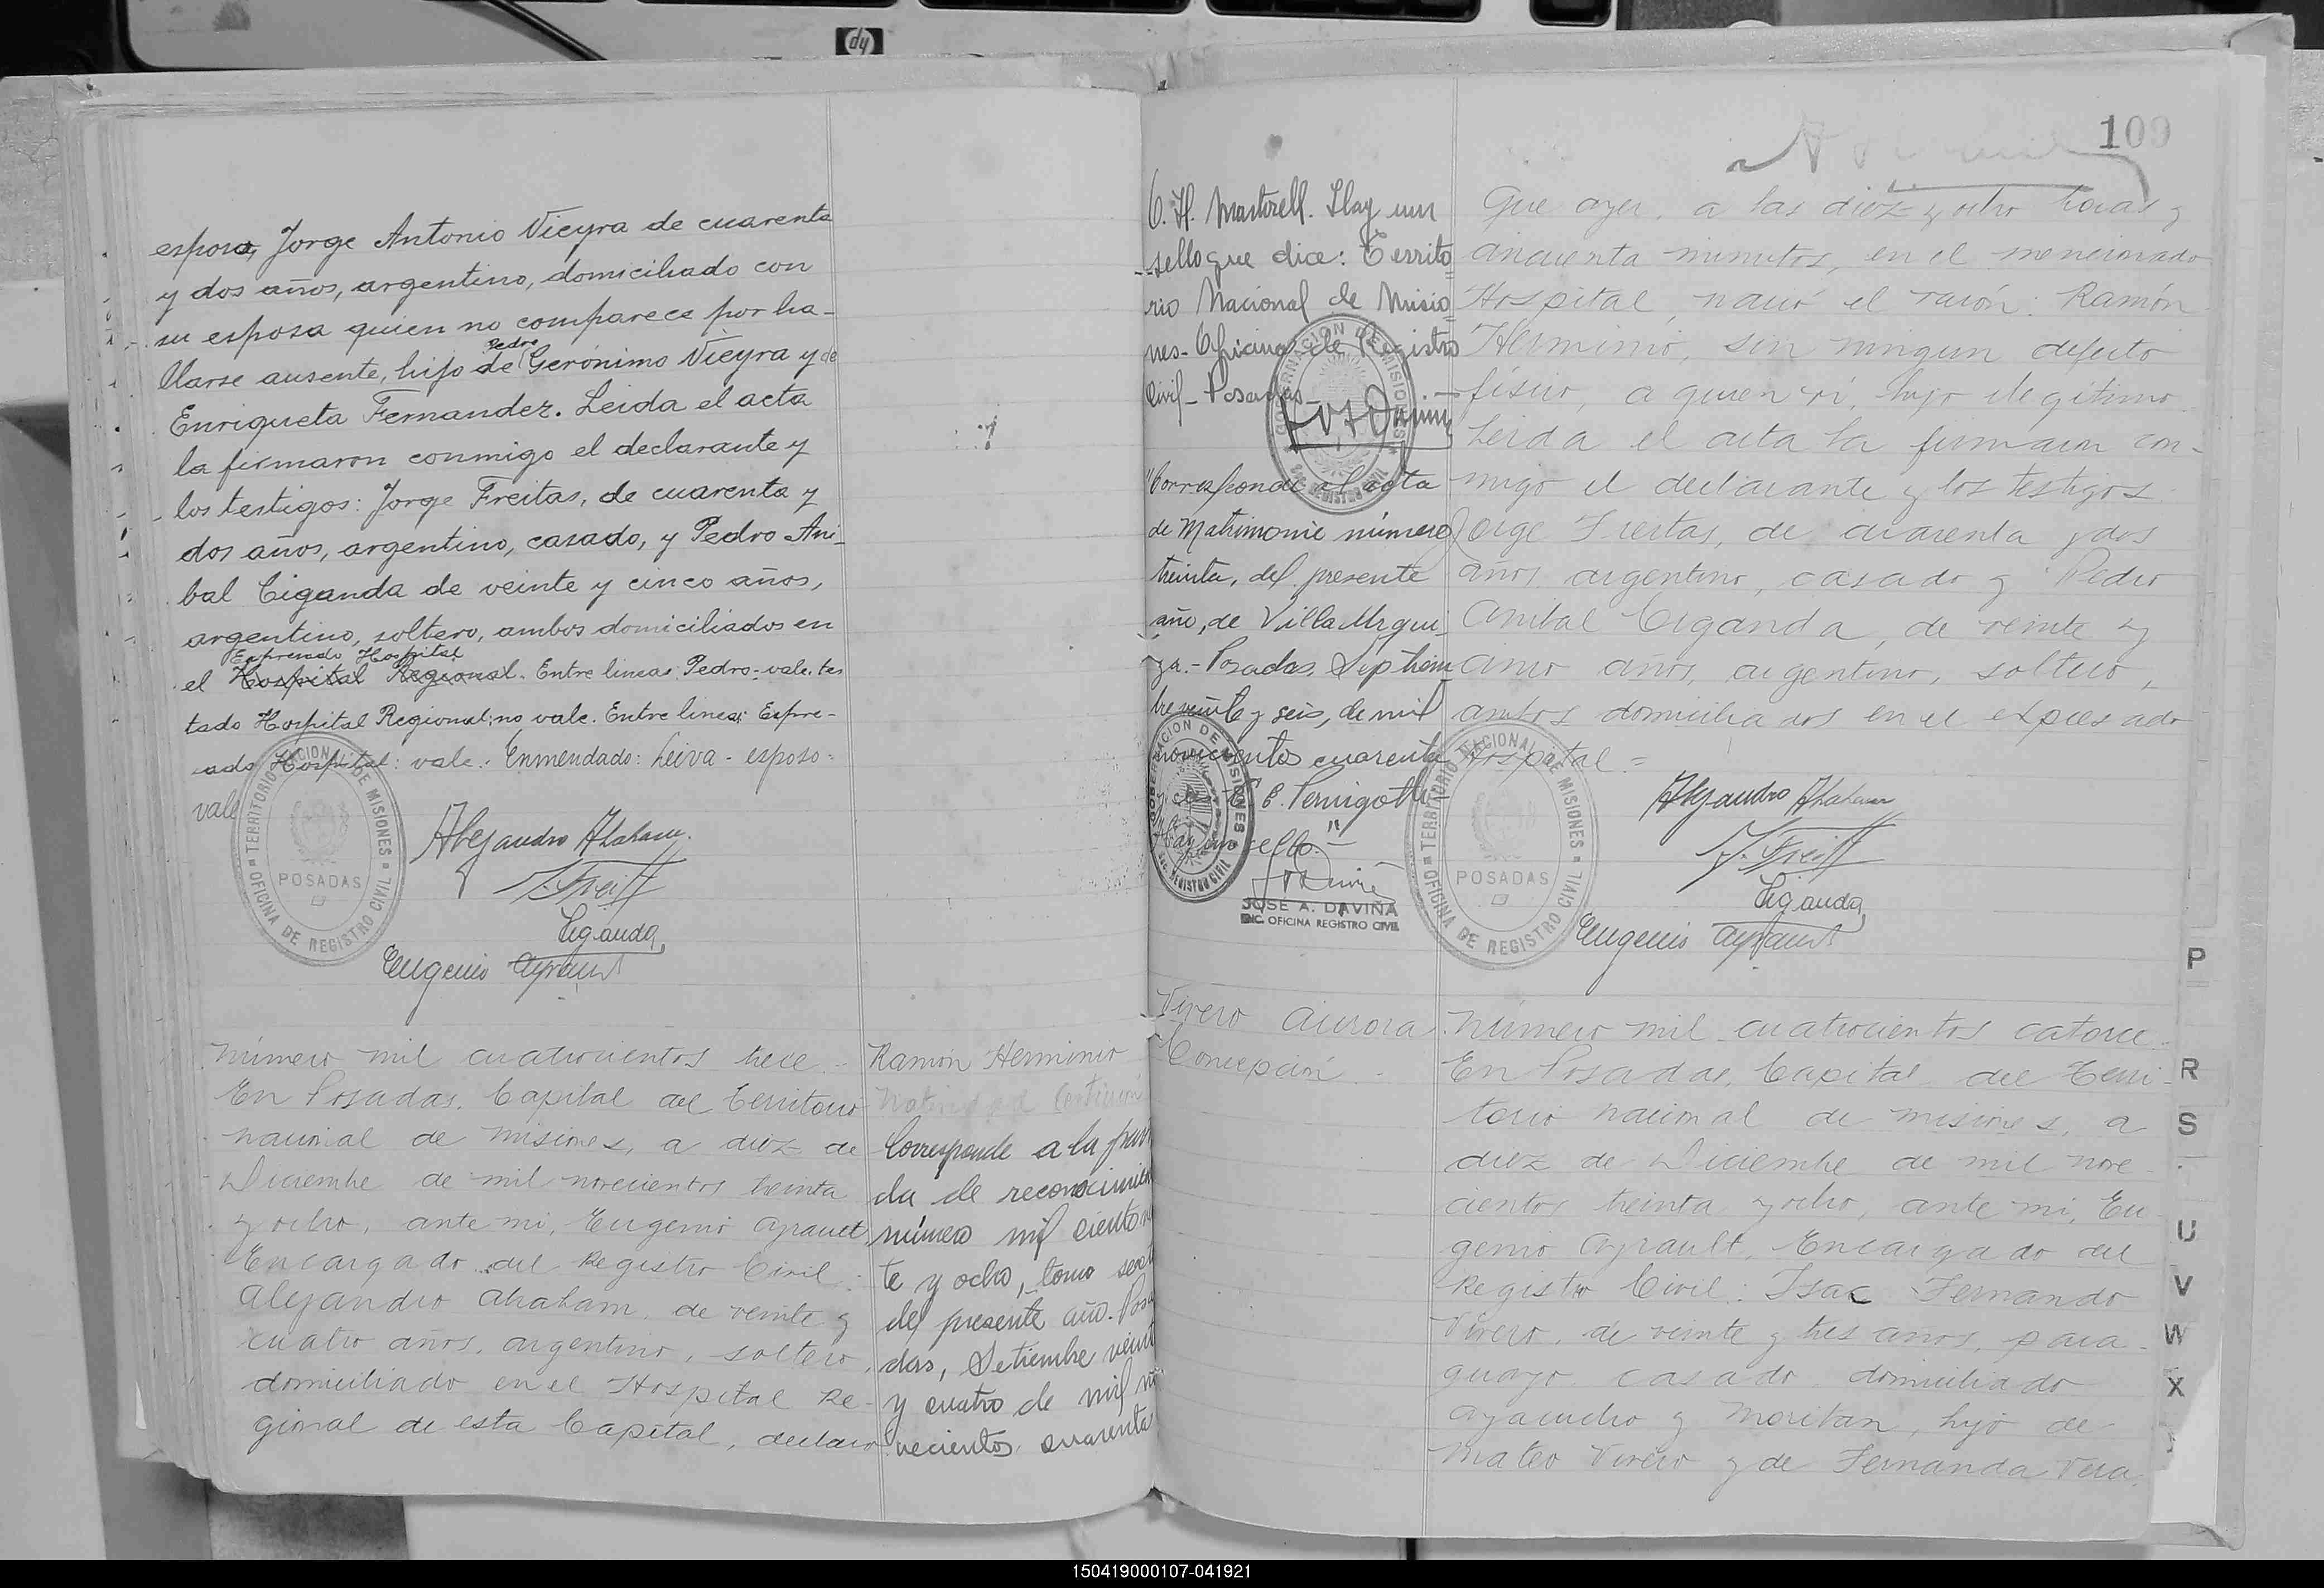 esposo, Jorge Antonio Vieyra de cuarenta
y dos años, argentino, domiciliado con
su esposa quien no comparece por ha-
llarse ausente, hijo de Pedro Gerónimo Vieyra y de
Enriqueta Fernandez. Leida el acta
la firmaron conmigo el declarante y
los testigos: Jorge Freitas, de cuarenta y
dos años, argentino, casado, y Pedro Ani-
bal Ciganda de veinte y cinco años,
argentino, soltero, ambos domiciliados en
Expresado Hospital
el Hospital Regional. Entre lineas: Pedro-vale. tes
tado Hospital Regional: no vale. Entre linea: Expre-
sado Hospital: vale. Enmendado: Leiva - esposo-
vale
TERRITORIO NACIONAL DE MISIONES
POSADAS
OFICINA DE REGISTRO CIVIL
Alejandro Ahaham
J. Freitt
Ciganda
Eugenio Ayrault
Número mil cuatrocientos trece
En Posadas, Capital del Territorio
nacional de Misiones, a diez de
Diciembre de mil novecientos treinta
y ocho, ante mi, Eugenio Ayrault
Encargado del Registro Civil:
Alejandro Ahaham, de veinte y
cuatro años, argentino, soltero,
domiciliado en el Hospital Re-
gional de esta Capital, declaro
Ramón Herminio
Corresponde a la parti
da de reconocimien
número mil ciento
te y ocho, tomo
del presente año. Posa
das, Setiembre veint
y cuatro de mil no
vecientos cuarenta
109
C. H. Martorell. Hay un
sello que dice: Territo
rio Nacional de Misio
nes- Oficina de Registro
Civil- Posadas-
GOBERNACION DE MISIONES
SEC. REGISTRO CIVIL
"Corresponde al acta
de Matrimonio número
treinta, del presente
año, de Villa Urqui
za.- Posadas, Septiem
bre veinte y seis, de mil
novecientos cuarenta
E. Pernigotti
Hay un sello.-"
GOBERNACION DE MISIONES
SEC. REGISTRO CIVIL
JOSE A. DAVIÑA
ENC. OFICINA REGISTRO CIVIL
Que ayer, a las diez y ocho horas y
cincuenta minutos, en el mencionado
Hospital, nació el varón: Ramón
Herminio, sin ningun defecto
físico, a quien vi, hijo ilegítimo.
Leida el acta la firmaron con-
migo el declarante y los testigos:
Jorge Freitas, de cuarenta y dos
años, argentino, casado y Pedro
Anibal Ciganda, de veinte y
cinco años, argentino, soltero,
ambos domiciliados en el expresado
Hospital =
TERRITORIO NACIONAL DE MISIONES
POSADAS
OFICINA DE REGISTRO CIVIL
Alejandro Ahaham
J. Freitt
Ciganda
Eugenio Ayrault
Vivero Aurora
Concepción
Número mil cuatrocientos catorce
En Posadas, Capital del Terri-
torio nacional de Misiones, a
diez de Diciembre de mil nove-
cientos treinta y ocho, ante mi, Eu
genio Ayrault, Encargado del
Registro Civil: Isac Fernando
Vivero, de veinte y tres años, para-
guayo, casado domiciliado
Ayacucho y Moritan, hijo de
Mateo Vivero y de Fernanda Vera.
P
R
S
U
V
W
X
150419000107-041921